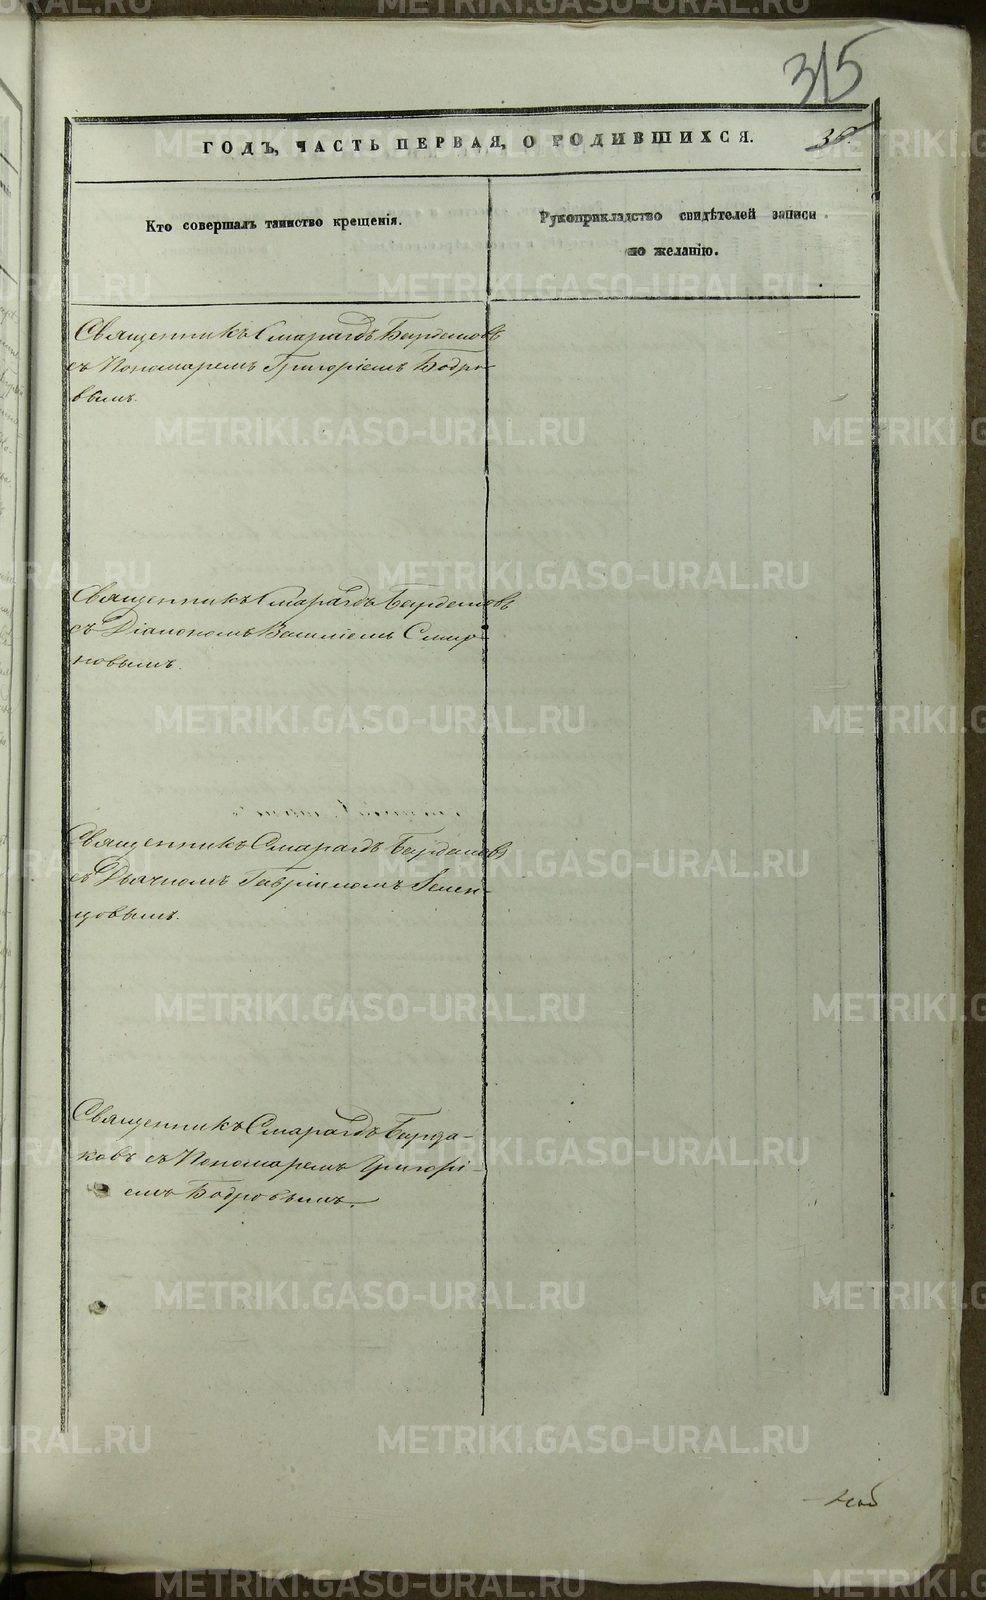 315
ГОДЪ, ЧАСТЬ ПЕРВАЯ, О РОДИВШИХСЯ.
Кто совершалъ таинство крещенія.
Рукоприкладство свидѣтелей записи
по желанію.
Священникъ Смарагдъ Бурдаковъ
съ Пономаремъ Григоріемъ Бодро-
вымъ.
Священникъ Смарагдъ Бурдаковъ
съ Діакономъ Василіемъ Смир-
новымъ.
Священникъ Смарагдъ Бурдаковъ
съ Дьячкомъ Гавріиломъ
Священникъ Смарагдъ Бурда-
ковъ съ Пономаремъ Григорі-
емъ Бодровымъ.
METRIKI.GASO-URAL.RU